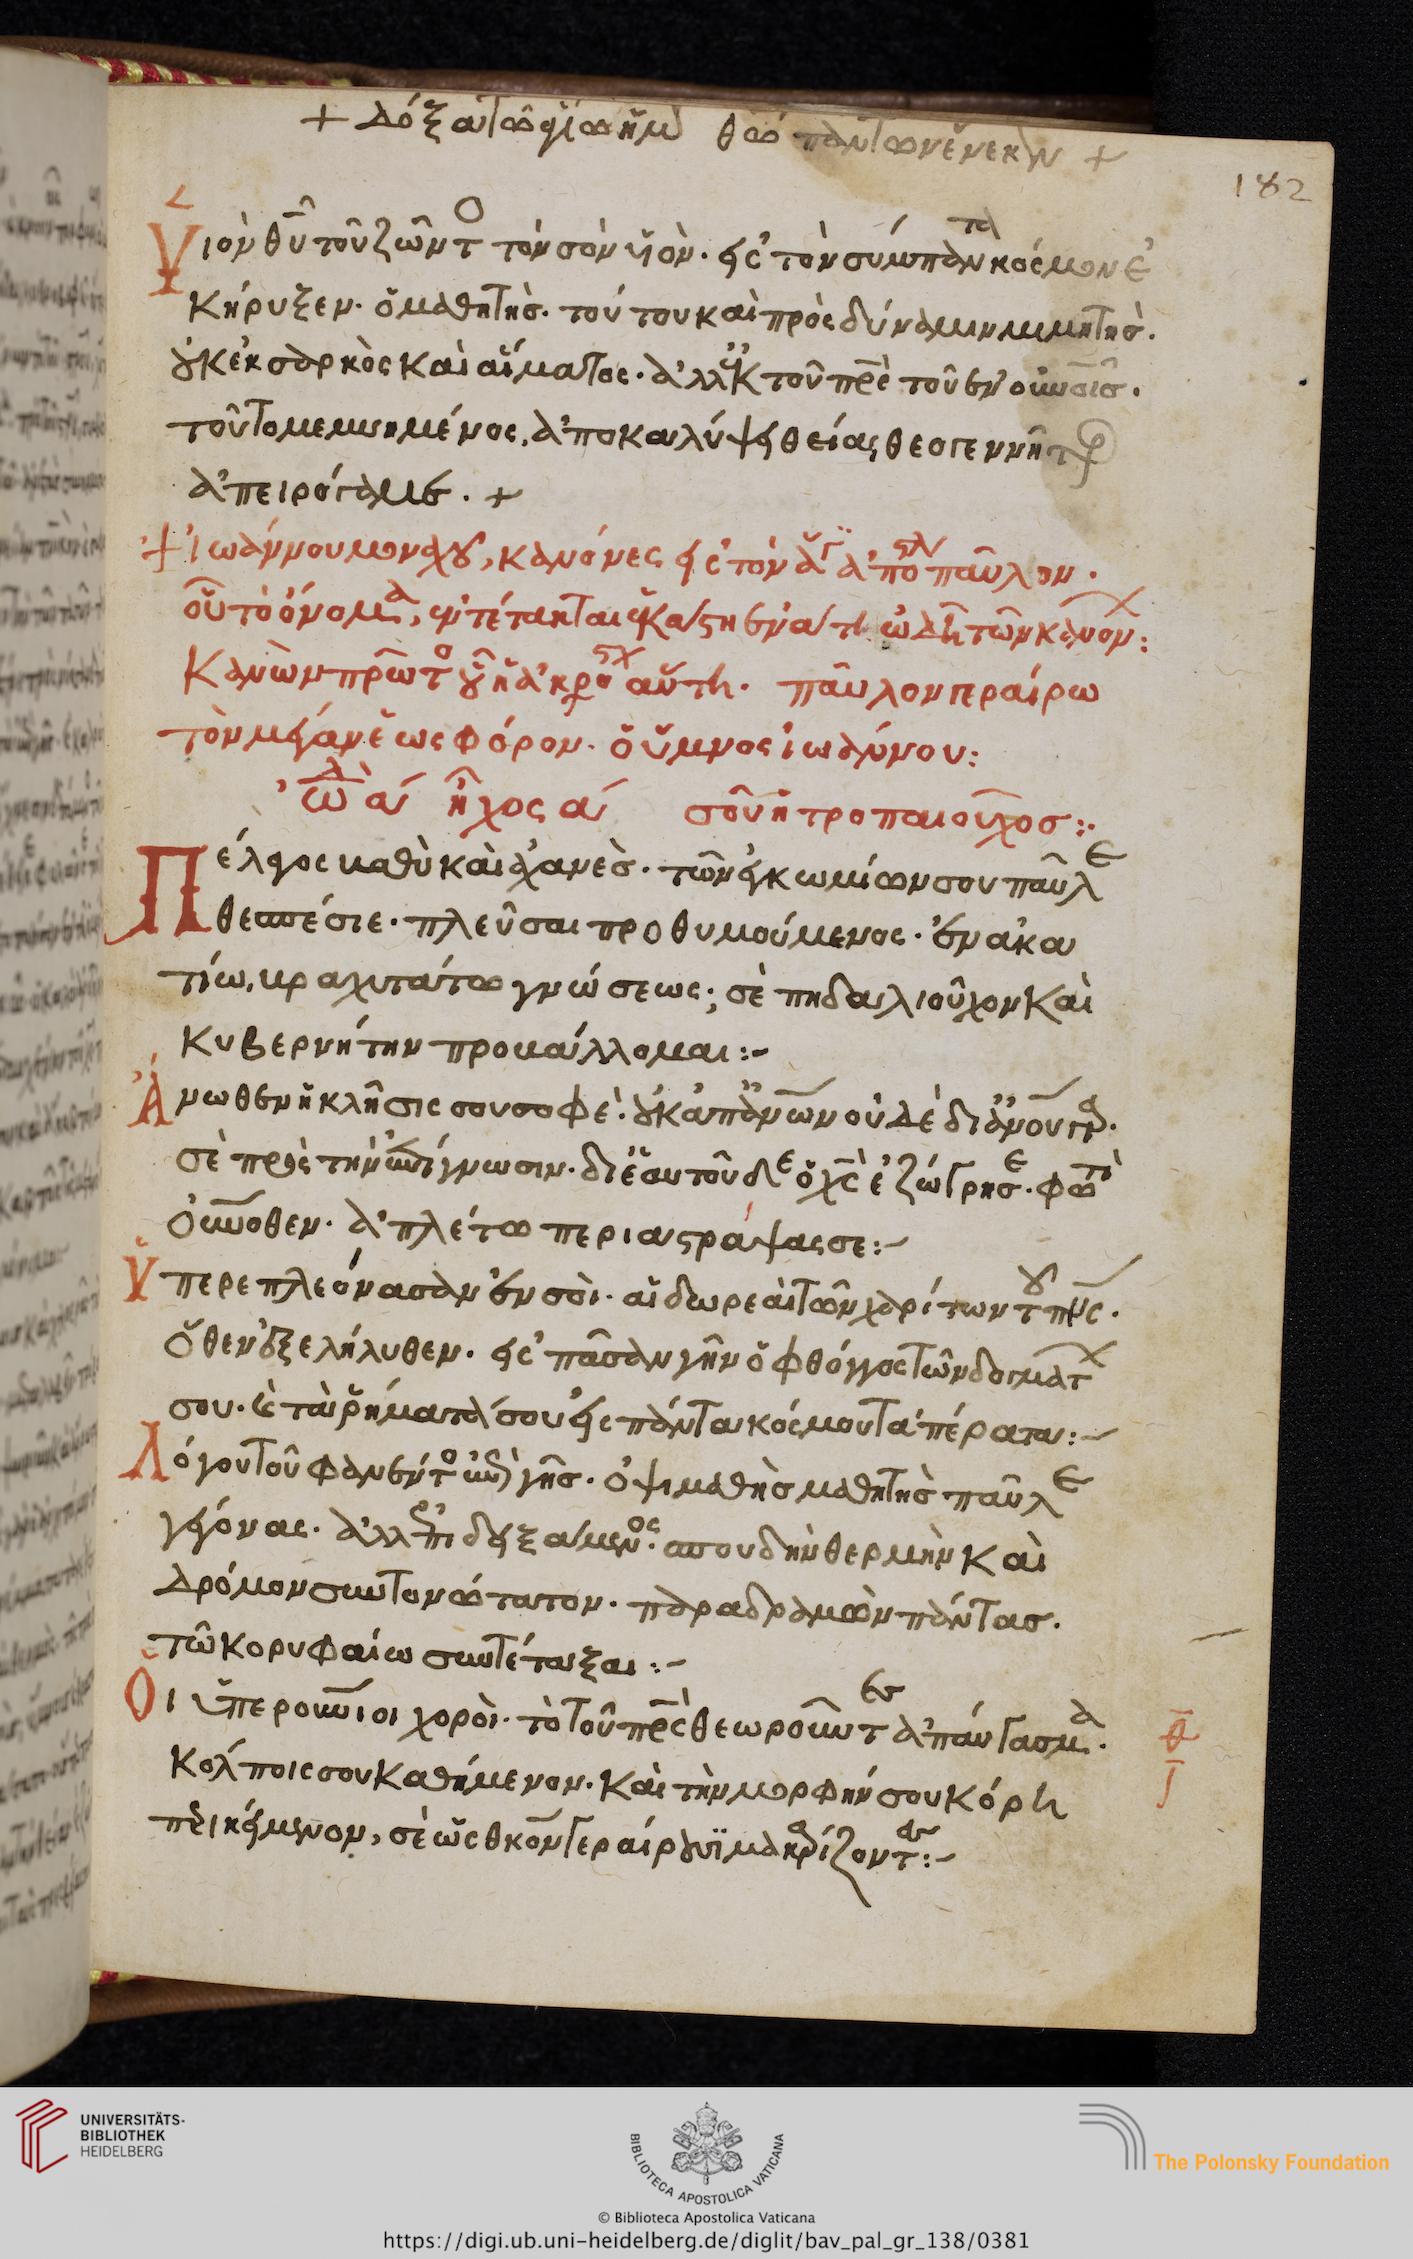 + Δόξα τῷ ἁγίῳ ἡμῶ θῶ πάντων ἕνεκεν +
182
Υἱὸν θῦ τοῦ ζῶντο τὸν σὸν υἱὸν. εἰς τὸν σύμπαντα κόσμον ἐ
κήρυξεν. ὁ μαθητὴς. τούτου καὶ πρὸς δύναμιν μιμητὴς.
οὐκ ἐκ σαρκὸς καὶ αἵματος. ἀλλ' ἐκ τοῦ πρς τοῦ ἐν οὐνοις.
τοῦτο μεμυημένος, ἀποκαλύψει θείας θεογεννῆτορ
ἀπειρόγαμε. +
+ Ἰωάννου μοναχοῦ, κανόνες εἰς τὸν ἅγι ἀπόστολ παῦλον.
οὗ τὸ ὄνομα, ἐντέτακται ἑκάστη ἐνάτη ὠδῆ τῶν κανόν:
Κανὼν πρῶτο οὗ ἡ ἀκροστχ αὕτη. παῦλον γεραίρω
τὸν μέγαν ἑωσφόρον. ὁ ὕμνος ἰωάννου:
ὠδὴ α ἦχος α σοῦ ἡ τροπαιοῦχος:
Πέλαγος βαθὺ καὶ ἀχανὲς. τῶν ἐγκωμίων σου παῦλε
θεσπέσιε. πλεῦσαι προθυμούμενος. ἐν ἀκα
τίω, βραχυτάτω γνώσεως; σὲ πηδαλιοῦχον καὶ
κυβερνήτην προβάλλομαι:-
Ἄνωθεν ἡ κλῆσις σου σοφὲ. οὐκ ἀπ' ἀνων οὐδὲ δι' ἀνου γὰρ.
σὲ πρὸς τὴν ἐπίγνωσιν. δι' ἑαυτοῦ δὲ ὁ χς ἐζώγρησε. φωτὶ
οὐνοθεν. ἀπλέτω περιαστράψας σε:-
Ὑπερεπλεόνασαν ἐν σοὶ. αἱ δωρεαὶ τῶν χαρίτων του πνς.
ὅθεν ἐξελήλυθεν. εἰς πᾶσαν γῆν ὁ φθόγγος τῶν δογμάτ
σου. καὶ τὰ ῥήματά σου εἰς πάντα κόσμου τὰ πέρατα:-
Λόγου τοῦ φανέντο ἐπὶ γῆς. ὀψιμαθὴς μαθητὴς παῦλε
γέγονας. ἀλλ' ἐπιδειξάμενος. σπουδὴν θερμὴν καὶ
δρόμον συντονώτατον. παραδραμὼν πάντας.
τῶ κορυφαίω συντέταξαι:-
Οἱ ὑπερουνιοι χοροὶ. τὸ τοῦ πρς θεωροῦντες ἀπαύγασμα.
κόλποις σου καθήμενον. καὶ τὴν μορφήν σου κόρη
περικείμενον, σὲ ὡς θκον γεραίρουσι μακαρίζοντες:-
UNIVERSITÄTS-
BIBLIOTHEK
HEIDELBERG
BIBLIOTECA APOSTOLICA VATICANA
The Polonsky Foundation
© Biblioteca Apostolica Vaticana
https://digi.ub.uni-heidelberg.de/diglit/bav_pal_gr_138/0381